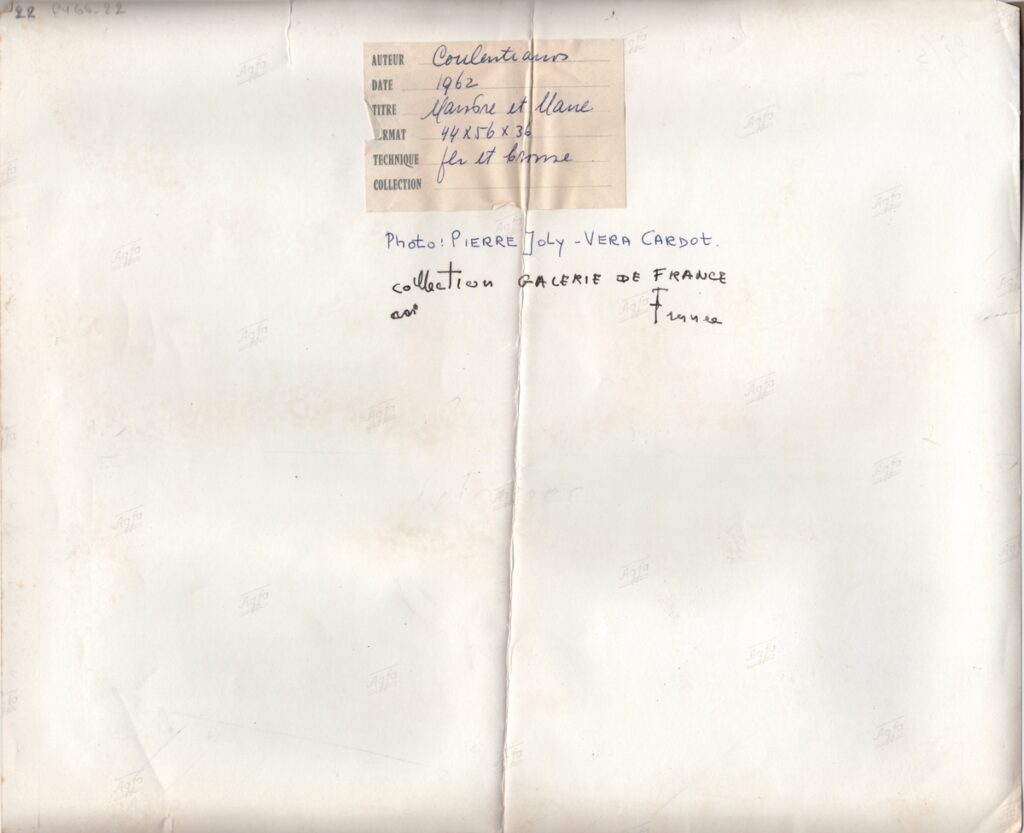 22 P464-22
AUTEUR Coulentianos
DATE 1962
TITRE et
RMAT 44 X 56 X 36
TECHNIQUE fer et bronze
COLLECTION
Photo: PIERRE Joly - VERA CARDOT.
collection GALERIE DE FRANCE
France
Agfa